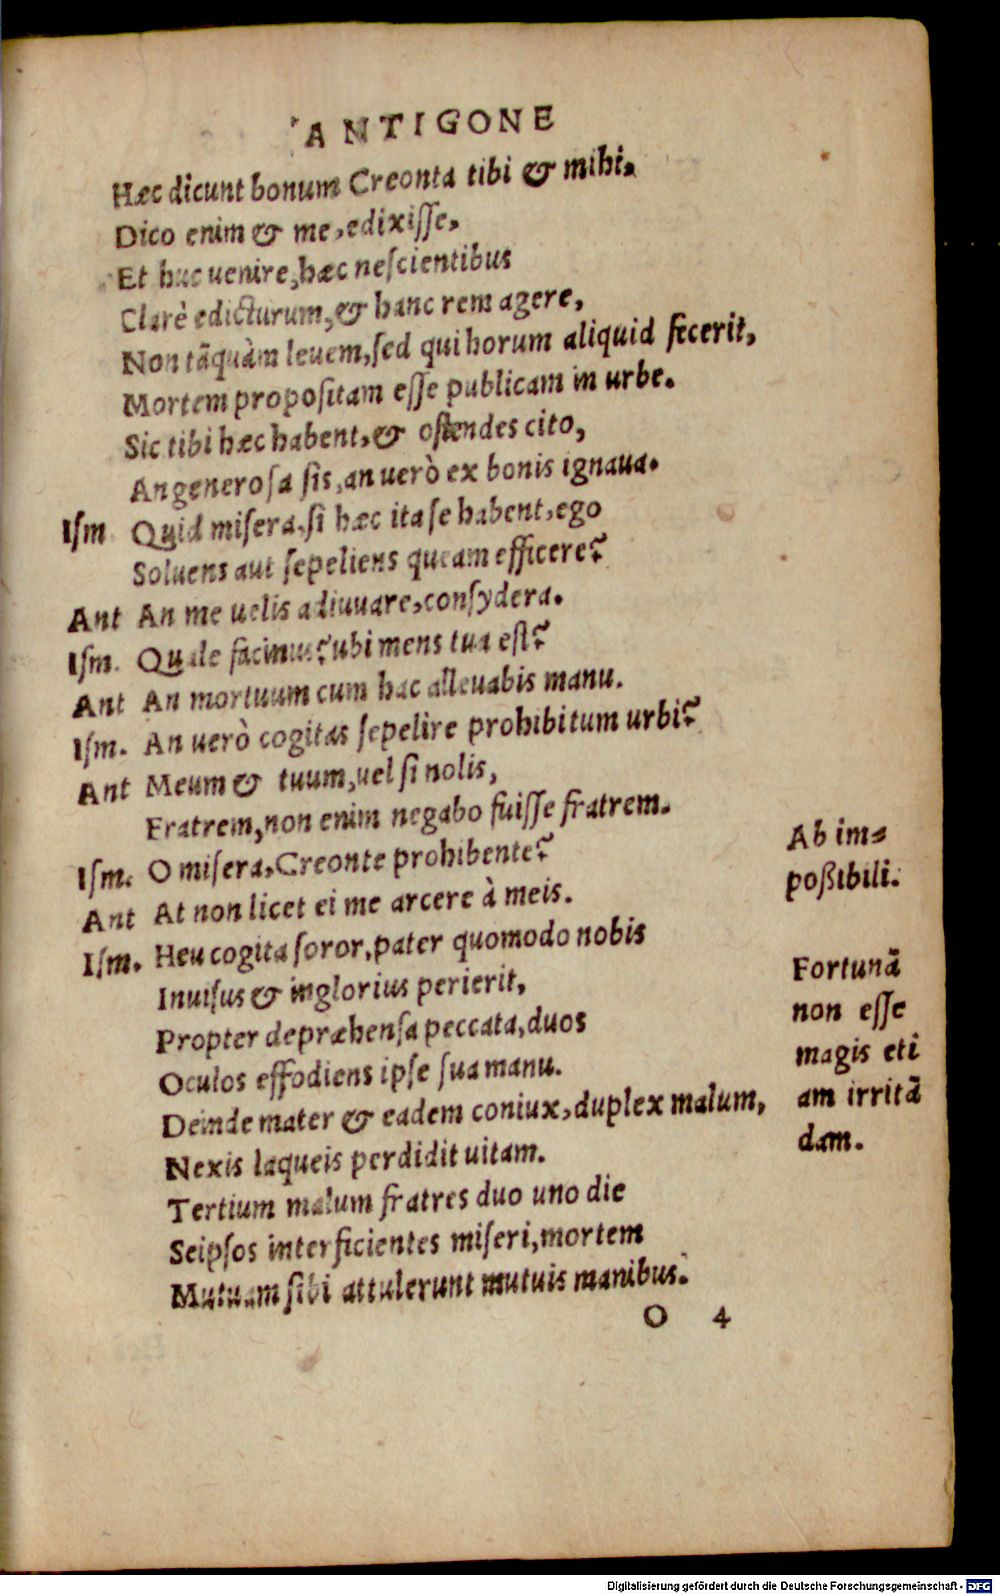 ANTIGONE
Hæc dicunt bonum Creonta tibi & mihi.
Dico enim & me, edixiſſe,
Et huc uenire, hæc neſcientibus
Clarè edicturum, & hanc rem agere,
Non tãquàm leuem, ſed qui horum aliquid fecerit,
Mortem propoſitam eſſe publicam in urbe.
Sic tibi hæc habent, & oſtendes cito,
An generoſa ſis, an uerò ex bonis ignaua.
Iſm Quid miſera, ſi hæc ita ſe habent, ego
Soluens aut ſepeliens queam efficere?
Ant An me uelis adiuuare, conſydera.
Iſm. Quale facinus? ubi mens tua eſt?
Ant An mortuum cum hac alleuabis manu.
Iſm. An uerò cogitas ſepelire prohibitum urbi?
Ant Meum & tuum, uel ſi nolis,
Fratrem, non enim negabo fuiſſe fratrem.
Iſm. O miſera, Creonte prohibente?
Ant At non licet ei me arcere à meis.
Iſm. Heu cogita ſoror, pater quomodo nobis
Inuiſus & inglorius perierit,
Propter depræhenſa peccata, duos
Oculos effodiens ipſe ſua manu.
Deinde mater & eadem coniux, duplex malum,
Nexis laqueis perdidit uitam.
Tertium malum fratres duo uno die
Seipſos interficientes miſeri, mortem
Mutuam ſibi attulerunt mutuis manibus.
O 4
Ab im⸗
poßibili.
Fortunã
non eſſe
magis eti
am irritã
dam.
Digitalisierung gefördert durch die Deutsche Forschungsgemeinschaft - DFG